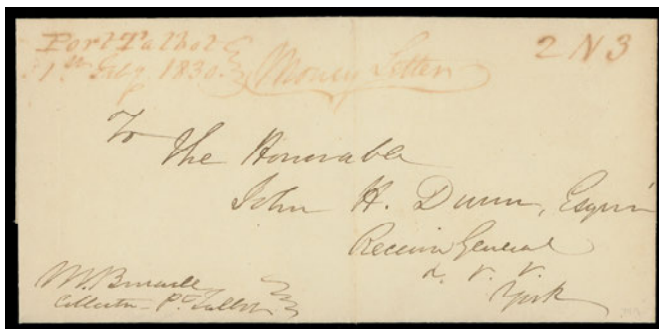 Port Talbot
1st Feby 1830.
Money Letter
2 N 3
To
The Honorable
John H. Dunn, Esquire
Receiver General
York
Collector Pt Talbot